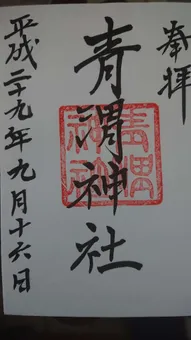 奉拝
青渭神社
平成二十九年九月十六日
青渭神社